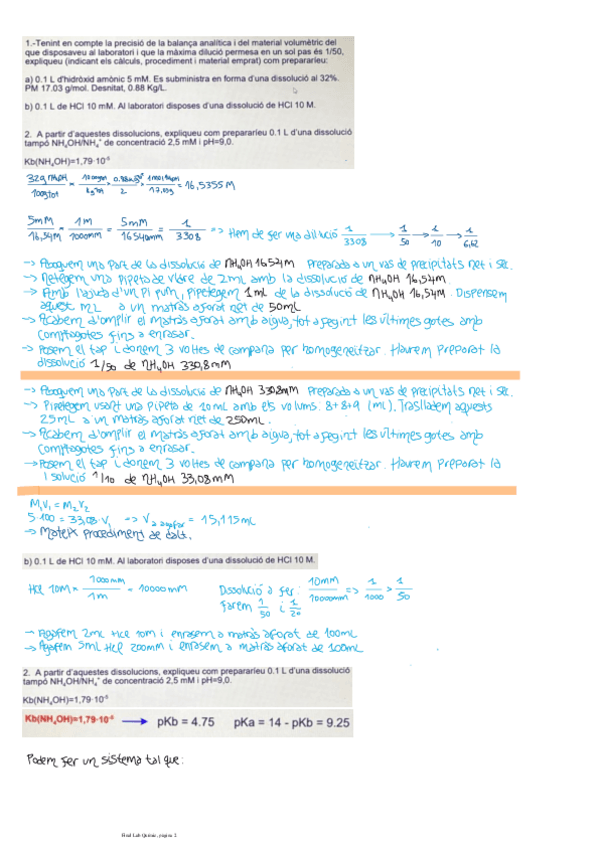 1.-Tenint en compte la precisió de la balança analítica i del material volumètric del
que disposaveu al laboratori i que la màxima dilució permesa en un sol pas és 1/50,
expliqueu (indicant els càlculs, procediment i material emprat) com prepararieu:
a) 0.1 L d'hidròxid amònic 5 mM. Es subministra en forma d'una dissolució al 32%.
PM 17.03 g/mol. Desnitat, 0.88 Kg/L.
b) 0.1 L de HCl 10 mM. Al laboratori disposes d'una dissolució de HCl 10 M.
2. A partir d'aquestes dissolucions, expliqueu com prepararieu 0.1 L d'una dissolució
tampó NH₄OH/NH₄⁺ de concentració 2,5 mM i pH=9,0.
Kb(NH₄OH)=1,79·10⁻⁵
= 16,5355 M
5mM/16,54M × 1M/1000mM = 5mM/16540mM = 1/3308 => Hem de fer una dilució 1/3308 → 1/50 → 1/10 → 1/6,62
→ Aboquem una part de la dissolució de NH₄OH 16,54M preparada a un vas de precipitats net i sec.
→ Netegem una pipeta de vidre de 2mL amb la dissolució de NH₄OH 16,54M.
→ Amb l'ajuda d'un Pi pum, pipetegem 1mL de la dissolució de NH₄OH 16,54M. Dispensem
aquest mL a un matràs aforat net de 50mL
→ Acabem d'omplir el matràs aforat amb aigua, tot afegint les últimes gotes amb
comptagotes fins a enrasar.
→ Posem el tap i donem 3 voltes de campana per homogeneitzar. Haurem preparat la
dissolució 1/50 de NH₄OH 330,8mM
→ Aboquem una part de la dissolució de NH₄OH 330,8mM preparada a un vas de precipitats net i sec.
→ Pipetegem usant una pipeta de 10mL amb els volums: 8+8+9 (mL). Traslladem aquests
25mL a un matràs aforat net de 250mL.
→ Acabem d'omplir el matràs aforat amb aigua, tot afegint les últimes gotes amb
comptagotes fins a enrasar.
→ Posem el tap i donem 3 voltes de campana per homogeneitzar. Haurem preparat la
1 solució 1/10 de NH₄OH 33,08mM
M₁V₁ = M₂V₂
5·100 = 33,08·V₁ → V a agafar = 15,115mL
→ Mateix procediment de dalt.
b) 0.1 L de HCl 10 mM. Al laboratori disposes d'una dissolució de HCl 10 M.
HCl 10M × 1000mM/1M = 10000mM Dissolució a fer: 10mM/10000mM => 1/1000 > 1/50
Farem 1/50 i 1/20
→ Agafem 2mL HCl 10M i enrasem a matràs aforat de 100mL
→ Agafem 5mL HCl 200mM i enrasem a matràs aforat de 100mL
2. A partir d'aquestes dissolucions, expliqueu com prepararieu 0.1 L d'una dissolució
tampó NH₄OH/NH₄⁺ de concentració 2,5 mM i pH=9,0.
Kb(NH₄OH)=1,79·10⁻⁵
Kb(NH₄OH)=1,79·10⁻⁵ → pKb = 4.75 pKa = 14 - pKb = 9.25
Podem fer un sistema tal que: